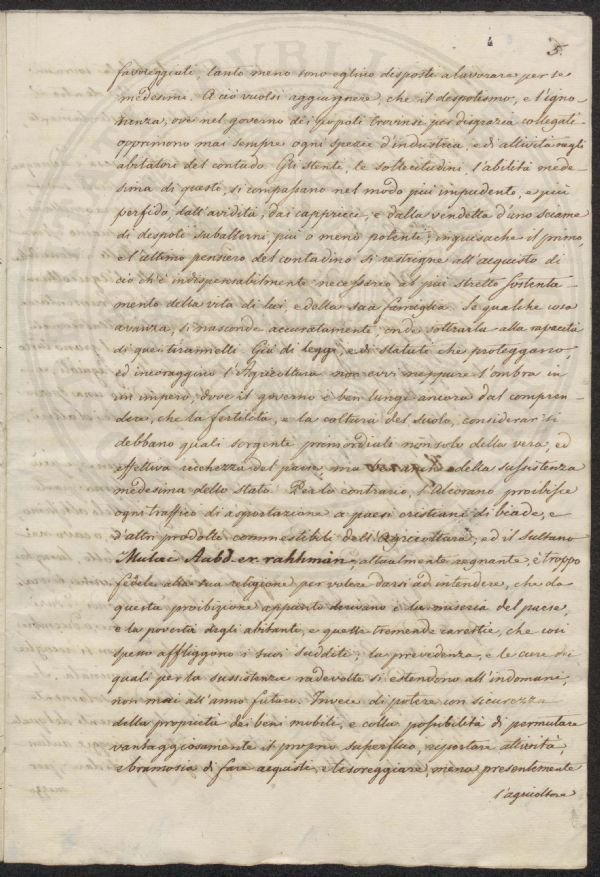 5.
favoreggiati, tanto meno sono eglino disposti a lavorare per se
medesimi. A ciò vuolsi aggiungnere, che il despotismo, e l'igno-
ranza, ove nel governo di i popoli trovinsi per disgrazia collegati
opprimono mai sempre ogni spezie d'industria, e di attività negli
abitatori del contado. Gli stenti, le sollecitudini, l'abilità mede-
sima di questi, si conpassano nel modo più impudente, e più
perfido, dall'avidità, dai cappricci, e dalla vendetta d'uno sciame
di despoti subalterni, più o meno potenti; inquisache il primo,
e l'ultimo pensiero del contadino si restrigne all'acquisto di
ciò ch'è indispensabilmente necessario al più stretto sostenta-
mento della vita di lui, e della sua famiglia. Se qualche cosa
avanza, si nasconde accuratamente, onde sottrarla alla rapacità
di quei tirannelli. Giù di leggi, e di statuti che proteggano,
ed incoraggino l'Agricoltura non evvi neppure l'ombra in
un impero, dove il governo è ben lungi ancora dal compren-
dere, che la fertilità, e la coltura del suolo, considerar si
debbano quali sorgente primordiale non solo della vera, ed
effettiva ricchezza del paese, ma della sussistenza
medesima dello stato. Per lo contrario, l'Alcorano proibisce
ogni traffico di asportazione a paesi cristiani di biade, e
d'altri prodotti commestibili dell'Agricoltura, ed il sultano
Mulac Aabd-er-rahhmàn, attualmente regnante, è troppo
fedele alla sua religione per volere darsi ad intendere, che da
questa proibizione appunto derivano e la miseria del paese,
e la povertà degli abitanti, e quelle tremende carestie, che così
spesso affliggono i suoi sudditi; la prevedenza, e le cure dei
quali per la sussistenza radevolte si estendono all'indomane,
non mai all'anno futuro. Invece di potere con sicurezza
della proprietà dei beni mobili, e colla possibilità di permutare
vantaggiosamente il proprio superfluo, riportare attività,
e bramosia di fare acquisti, e tesoreggiare, mena presentemente
l'agricoltore